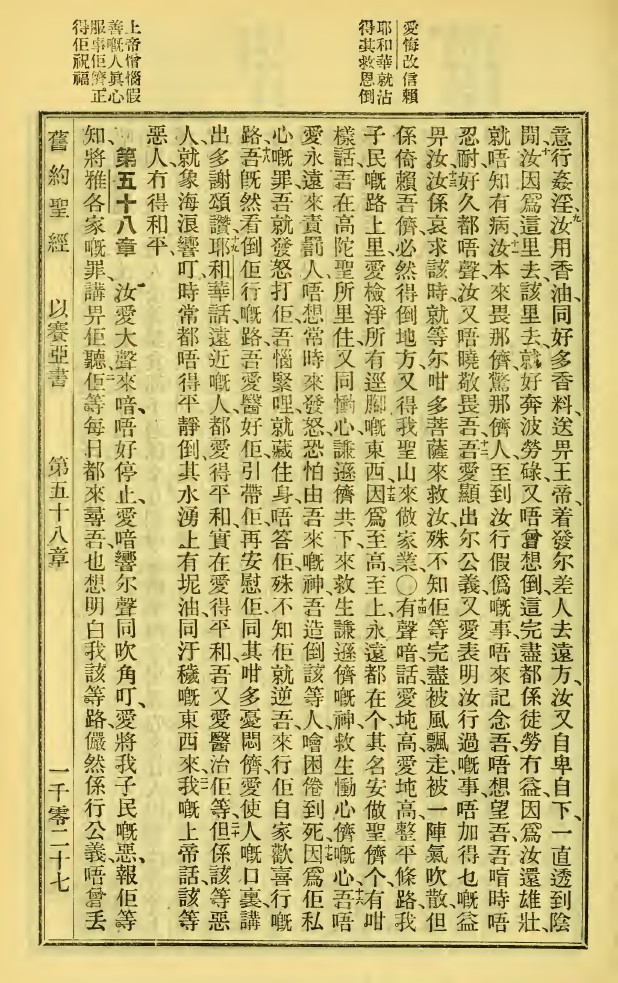 愛悔改信賴
耶和華就沾
得其救恩倒
上帝憎惱假
善嘅人眞心
服事佢儕正
得佢祝福
意行姦淫、九汝用香油同好多香料、送畀王帝、着發尔差人去遠方、汝又自卑自下、一直透到陰
間、十汝因爲這里去、該里去、就好奔波勞碌、又唔曾想倒、這完盡都係徒勞冇益、因爲汝還雄壯、
就唔知有病、十一汝本來畏那儕、驚那儕人、至到汝行假僞嘅事、唔來記念吾、唔想望吾、吾啃時唔
忍耐好久都唔聲、汝又唔曉敬畏吾、十二吾愛顯出尔公義、又愛表明汝行過嘅事、唔加得乜嘅益
畀汝、十三汝係哀求該時、就等尔咁多菩薩來救汝、殊不知佢等完盡被風飄走、被一陣氣吹散、但
係倚賴吾儕、必然得倒地方、又得我聖山來做家業、〇十四有聲喑話、愛坉高、愛坉高、整平條路、我
子民嘅路上里、愛檢淨所有逕脚嘅東西、十五因爲至高至上、永遠都在个、其名安做聖儕个、有咁
樣話、吾在高陀聖所里住、又同慟心謙遜儕共下、來救生謙遜儕嘅神、救生慟心儕嘅心、十六吾唔
愛永遠來責罰人、唔想常時來發怒、恐怕由吾來嘅神、吾造倒該等人、噲困倦到死、十七因爲佢私
心嘅罪、吾就發怒打佢、吾惱緊哩、就藏住身、唔答佢、殊不知佢就逆吾、來行佢自家歡喜行嘅
路、十八吾旣然看倒佢行嘅路、吾愛醫好佢、引帶佢、再安慰佢、同其咁多憂悶儕、愛使人嘅口裏講
出多謝頌讚、十九耶和華話、遠近嘅人、都愛得平和、實在愛得平和、吾又愛醫治佢等、二十但係該等惡
人、就象海浪響叮、時常都唔得平靜倒、其水湧上有坭油、同汙穢嘅東西來、二一我嘅上帝話、該等
惡人冇得和平、
第五十八章 一汝愛大聲來喑、唔好停止、愛喑響尔聲、同吹角叮、愛將我子民嘅惡、報佢等
知、將雅各家嘅罪、講畀佢聽、二佢等每日都來尋吾、也想明白我該等路、儼然係行公義、唔曾丟
舊約聖經 以賽亞書 第五十八章 一千零二十七